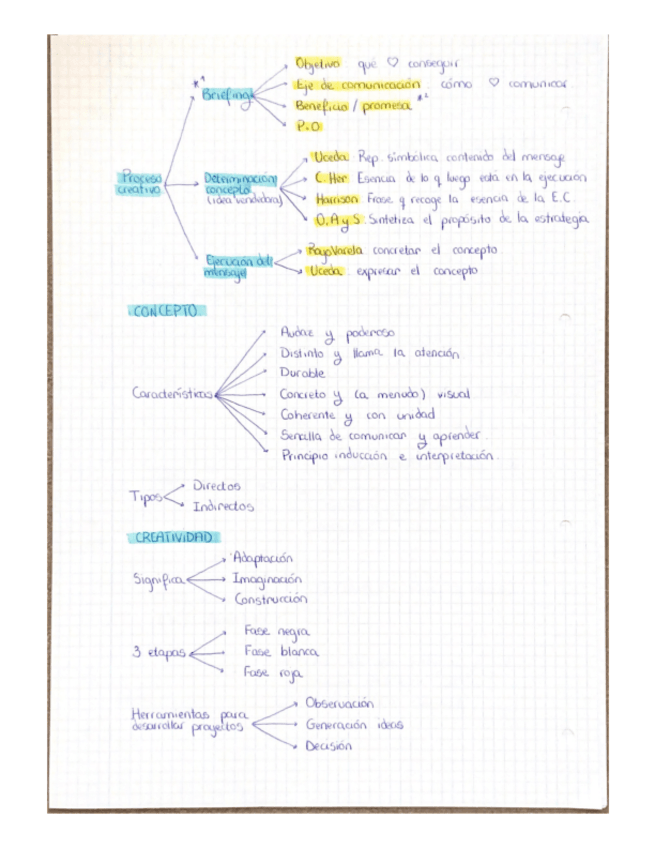 Objetivo qué ♡ conseguir
*¹
Briefing
Eje de comunicación cómo ♡ comunicar
Beneficio / promesa *²
P.O
Proceso
creativo
Determinación
concepto
(idea vendedora)
Uceda Rep. simbólica contenido del mensaje
C. Her Esencia de lo q luego está en la ejecución
Harrison Frase q recoge la esencia de la E.C.
O, A y S Sintetiza el propósito de la estrategia
Ejecución del
mensaje
RoyoVarela concretar el concepto
Uceda expresar el concepto
CONCEPTO
Características
Audaz y poderoso
Distinto y llama la atención
Durable
Concreto y (a menudo) visual
Coherente y con unidad
Sencilla de comunicar y aprender
Principio inducción e interpretación
Tipos
Directos
Indirectos
CREATIVIDAD
Significa
Adaptación
Imaginación
Construcción
3 etapas
Fase negra
Fase blanca
Fase roja
Herramientas para
desarrollar proyectos
Observación
Generación ideas
Decisión